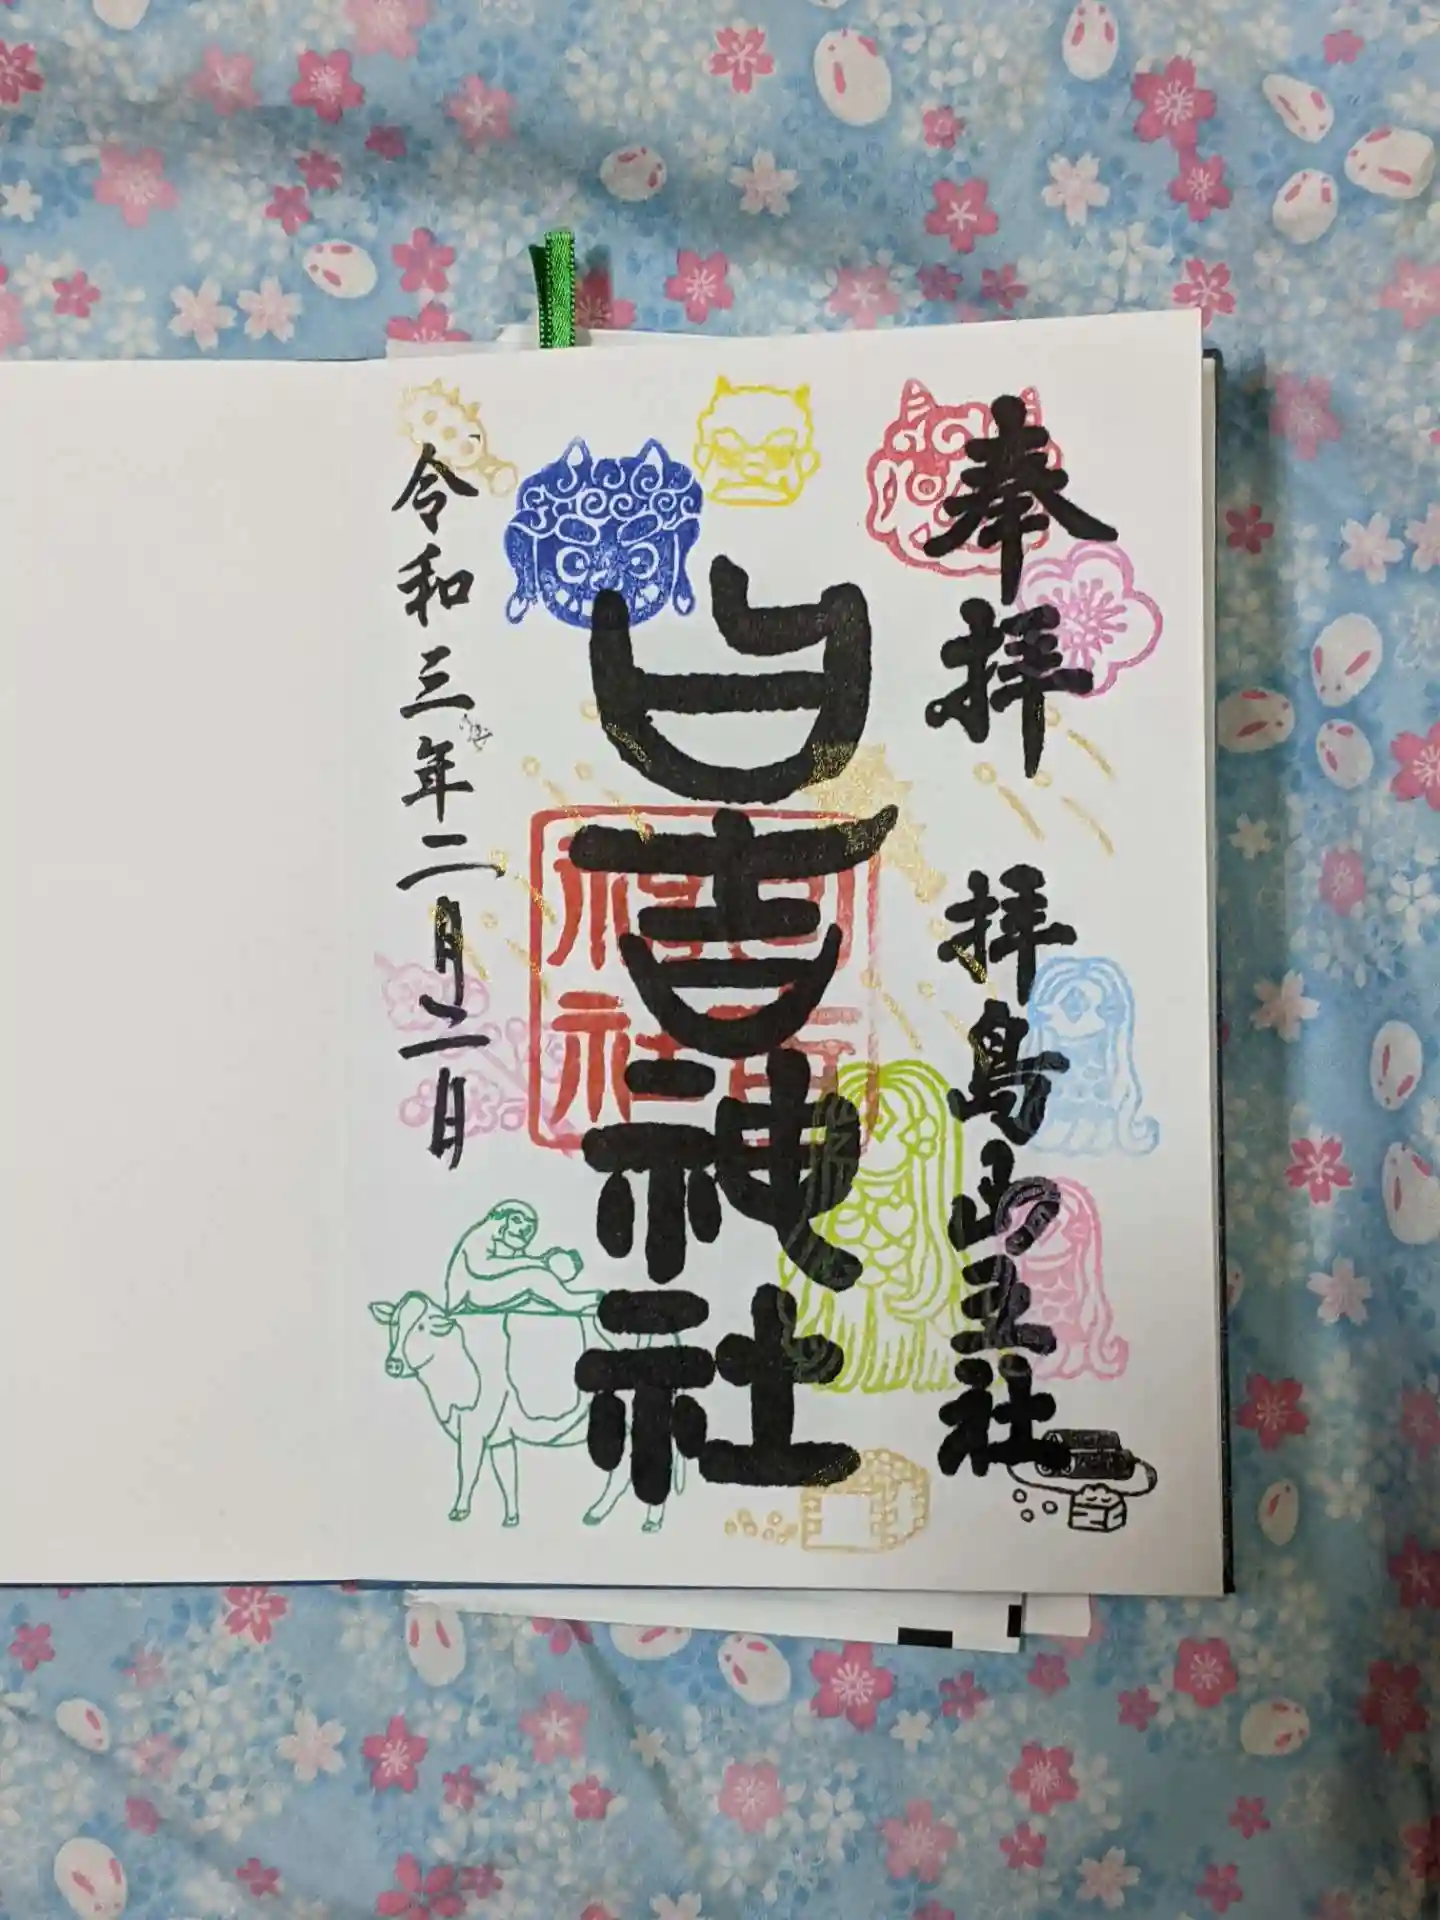 奉拝 拝島山王社
日吉神社
令和三年二月二日